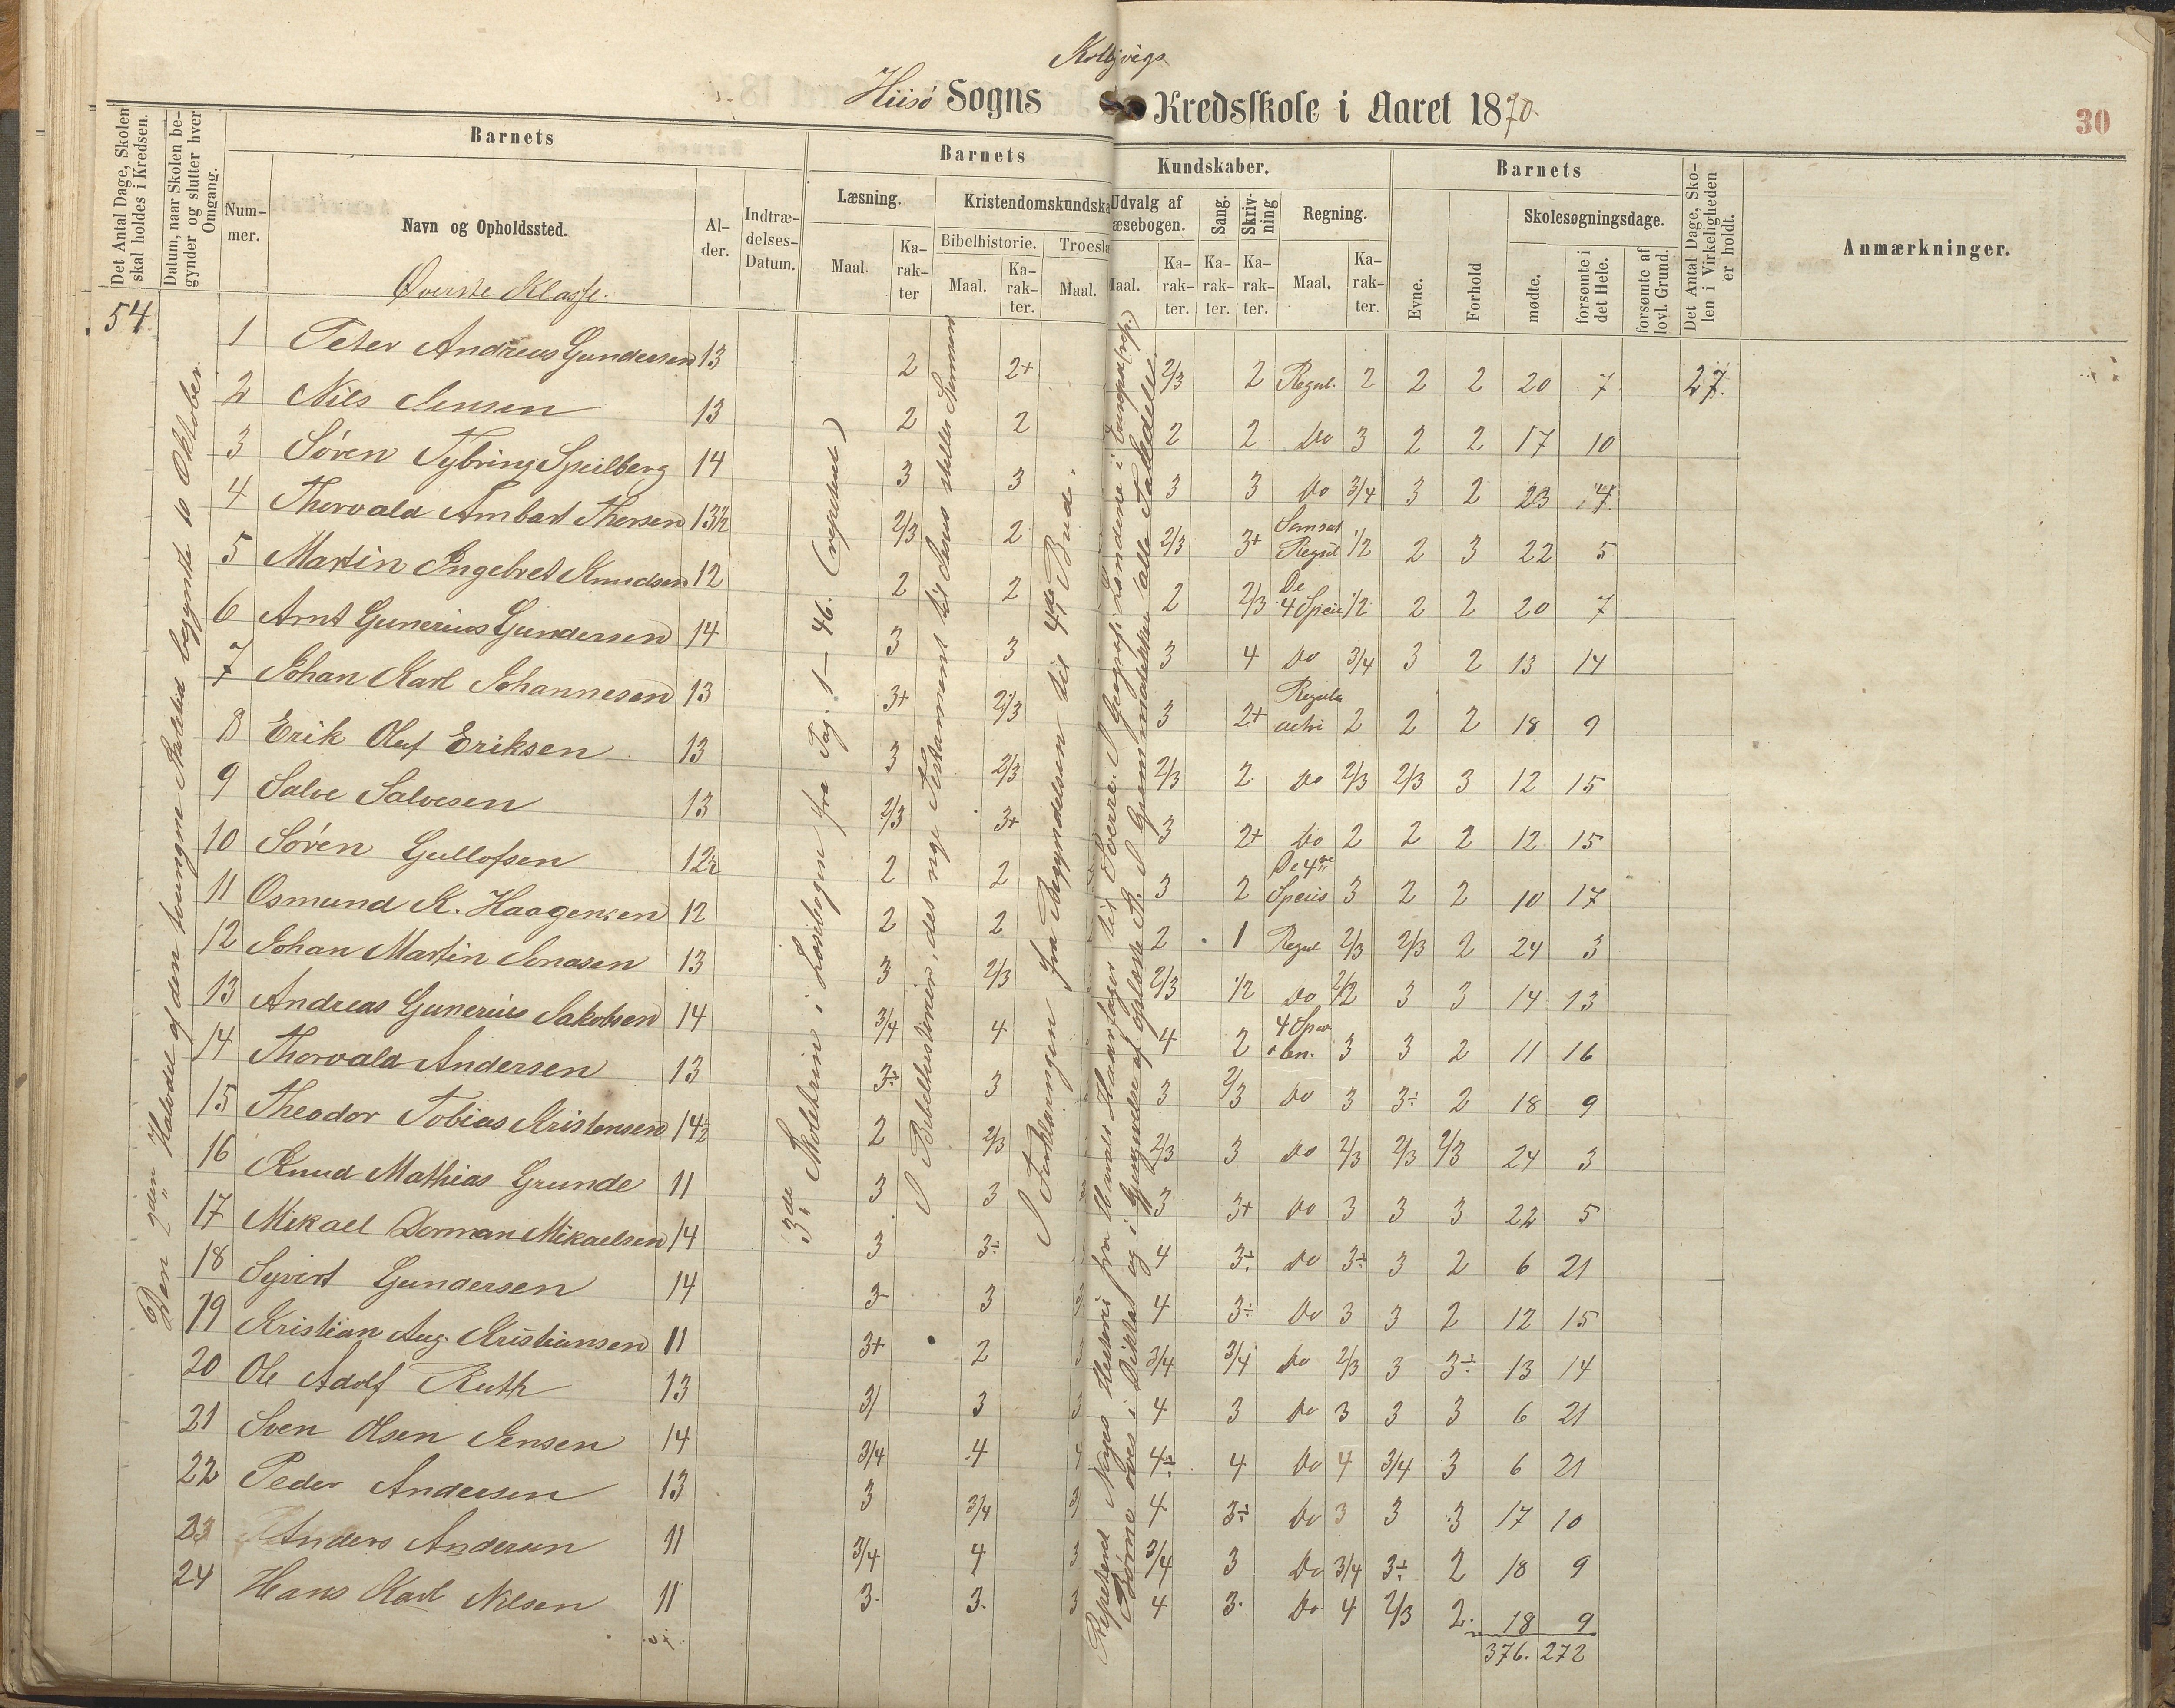 Kolbjvigs
Hiisø Sogns Kredsskole i Aaret 1870.
30
Det Antal Dage, Skolen skal holdes i Kredsen.
Datum, naar Skolen begynder og slutter hver Omgang.
Barnets
Nummer.
Navn og Opholdssted.
Alder.
Indtrædelses-Datum.
Barnets
Kundskaber.
Læsning.
Maal.
Karakter
Kristendomskundska
Bibelhistorie.
Maal.
Karakter.
Troesla
Maal.
Udvalg af
æsebogen.
Maal.
Karakter.
Sang.
Karakter.
Skrivning
Karakter.
Regning.
Maal.
Karakter.
Barnets
Evne.
Forhold
Skolesøgningsdage.
mødte.
forsømte i det Hele.
forsømte af lovl. Grund.
Det Antal Dage, Skolen i Virkeligheden er holdt.
Anmærkninger.
Øverste Klasse.
54
Den 2den Halvodel af den tvungne Skoletid begynte 10 Oktober.
3de Skoletrin i Læsebogen fra Pag. 1-46. (repeteret)
I Bibelhistorien, det nye Testamente til Jesus stiller Stormen
I Forklaringen fra Begyndelsen til 4de Bud.
Repeterd Norges Historie fra Harald Haarfager til Sverre. I Geografi Landene i Europa (rep.)
Børne øves i Diktat og i Gjengivelse af oplæste St. I Grammatikken alle Taledele
1 Peter Andreas Gundersen 13 2 2+ 2/3 2 Regul. 2 2 2 20 7 27.
2 Nils Jensen 13 2 2 2 2 Do 3 2 2 17 10
3 Søren Tybring Speilberg 14 3 3 3 3 Do 3/4 3 2 23 4
4 Thorvald Ambart Thorsen 13½ 2/3 2 2/3 3+ Samsat Regul 1/2 2 3 22 5
5 Martin Ingebret Knudsen 12 2 2 2 2/3 De 4 Speci 1/2 2 2 20 7
6 Arnt Gunerius Gundersen 14 3 3 3 4 Do 3/4 3 2 13 14
7 Johan Karl Johannesen 13 3+ 2/3 3 2+ Regula detri 2 2 2 18 9
8 Erik Oluf Eriksen 13 3 2/3 2/3 2 Do 2/3 2/3 3 12 15
9 Salve Salvesen 13 2/3 3+ 3 2+ Do 2 2 2 12 15
10 Sørèn Gullofsen 12½ 2 2 3 2 De 4 Speci 3 2 2 10 17
11 Osmund K. Haagensen 12 2 2 2 1 Regul 2/3 2/3 2 24 3
12 Johan Martin Jonasen 13 3 2/3 2/3 1/2 Do 1/2 3 3 14 13
13 Andreas Gunerius Jakobsen 14 3/4 4 4 2 4 Spec i ben. 3 3 2 11 16
14 Thorvald Andersen 13 3÷ 3 3 2/3 Do 3 3÷ 2 18 9
15 Theodor Tobias Kristensen 14½ 2 2/3 2/3 3 Do 2/3 2/3 2/3 24 3
16 Knud Mathias Grunde 11 3 3 3 3 3+ Do 3 3 3 22 5
17 Mikael Dorman Mikaelsen 14 3 3÷ 4 3÷ Do 3÷ 3 2 6 21
18 Syvert Gundersen 14 3- 3 4 3÷ Do 3 3 2 12 15
19 Kristian Aug. Kristiansen 11 3+ 2 3 3/4 3/4 Do 2/3 3 3÷ 13 14
20 Ole Adolf Ruth 13 3 3 3 4 3 Do 3 3 3 6 21
21 Sven Olsen Jensen 14 3/4 4 4 4÷ 4 Do 4 3/4 3 6 21
22 Peder Andersen 13 3 3/4 3 4 3÷ Do 3 3 3 17 10
23 Anders Andersen 11 3/4 4 3 3/4 3 Do 3/4 3÷ 2 18 9
24 Hans Karl Nilsen 11 3. 3. 3 4 3. Do 4 2/3 2. 18 9
376. 272